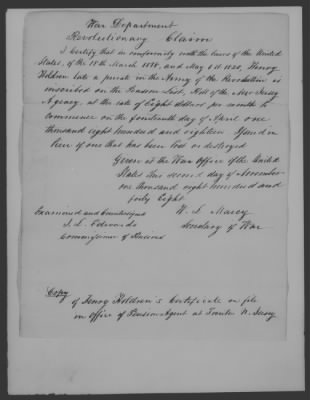 War Department
Revolutionary Claim
I Certify that in conformity with the laws of the United
States, of the 18th March 1818, and May 1st 1820, Henry
Holdren late a private in the Army of the Revolution is
inscribed on the Pension List, Roll of the New Jersey
Agency, at the rate of Eight dollars per month to
commence on the fourteenth day of April one
thousand eight hundred and eighteen Issued in
lieu of one that has been lost or destroyed
Given at the War Office of the United
States this second day of November
one thousand eight hundred and
forty Eight
Examined and Countersigned W. L. Marcy
J. L. Edwards Secretary of War
Commissioner of Pensions
Copy of Henry Holdren's Certificate on file
in office of Pension Agent at Trenton N. Jersey